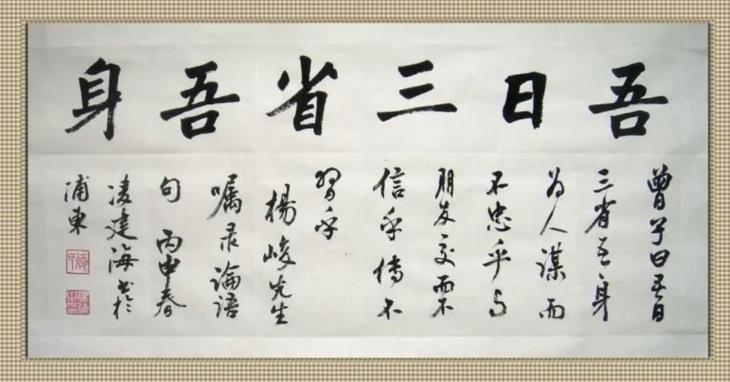 吾日三省吾身
曾子曰吾日
三省吾身
为人谋而
不忠乎与
朋友交而不
信乎传不
習乎
楊峻先生
嘱录论語
句 丙申春
凌建海书於
浦東